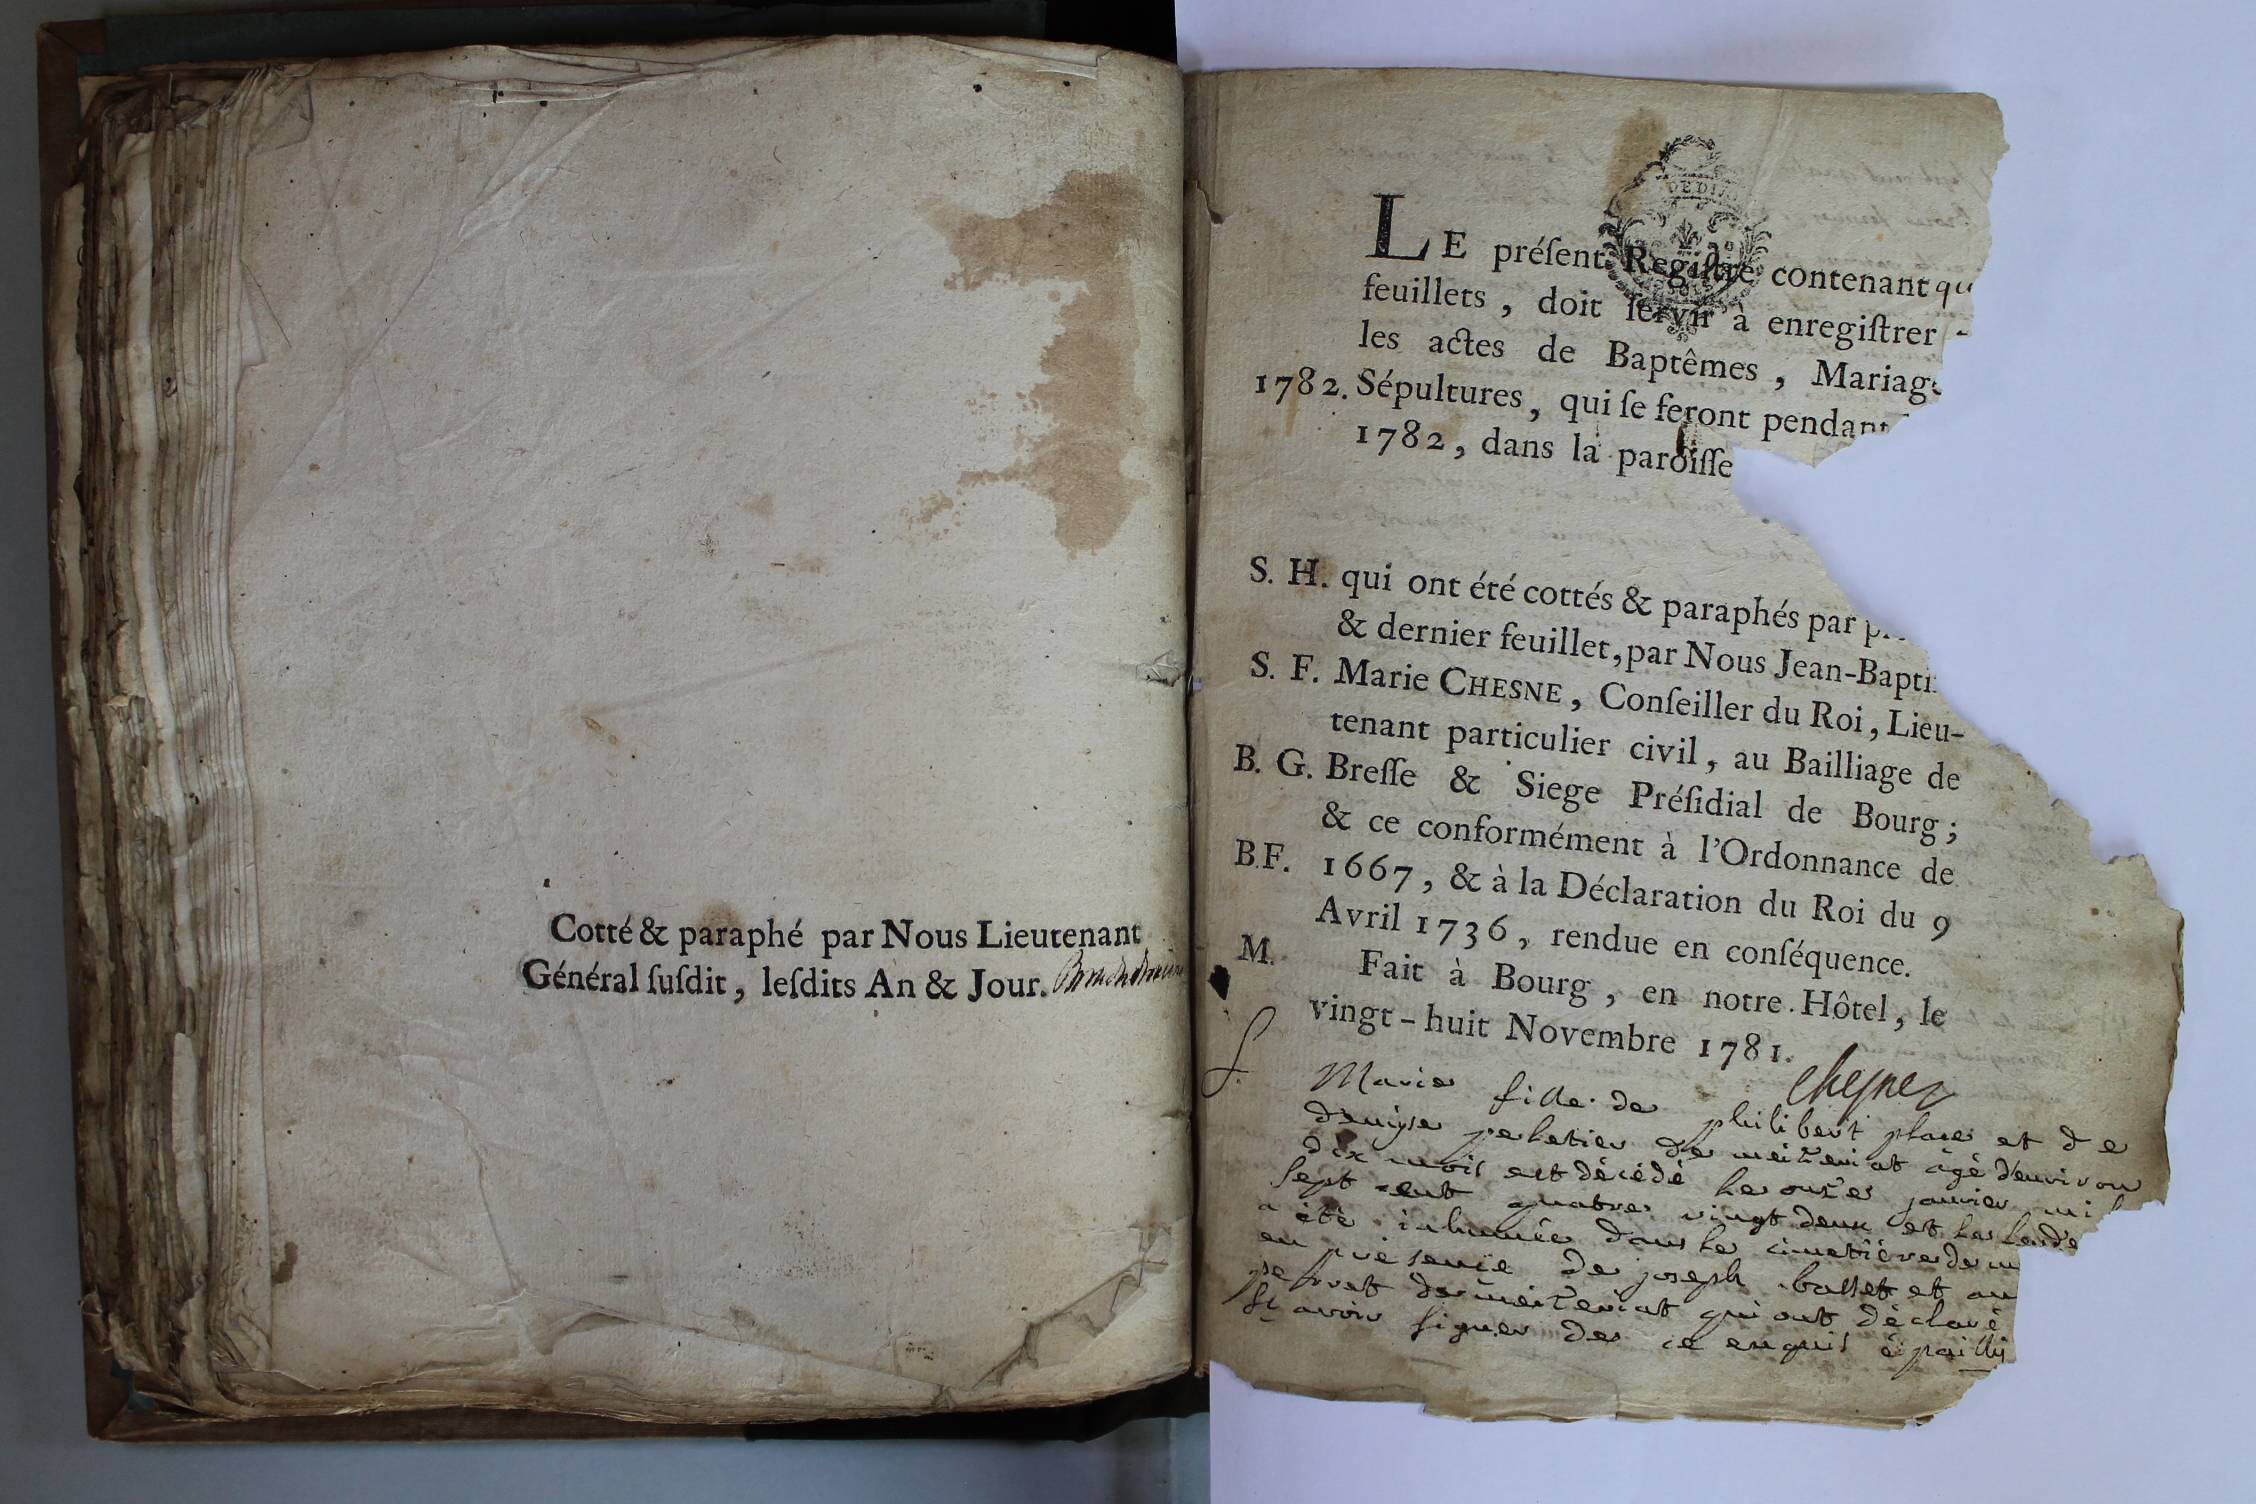 Cotté & paraphé par Nous Lieutenant
Général ſuſdit, leſdits An & Jour.
LE préſent Regiſtre contenant
feuillets, doit ſervir à enregiſtrer
les actes de Baptêmes, Mariage
1782. Sépultures, qui ſe feront pendant
1782, dans la paroiſſe
S. H. qui ont été cottés & paraphés par
& dernier feuillet, par Nous Jean-Bapti
S. F. Marie CHESNE, Conſeiller du Roi, Lieu-
tenant particulier civil, au Bailliage de
B. G. Breſſe & Siege Préſidial de Bourg;
& ce conformément à l'Ordonnance de
B.F. 1667, & à la Déclaration du Roi du 9
Avril 1736, rendue en conſéquence.
M. Fait à Bourg, en notre Hôtel, le
vingt-huit Novembre 1781.
chesne
S. Marie fille de philibert place et de
denyse peletier de meizeriat âgé d'environ
dix mois est décédé le onze janvier mil
sept cent quatre vingt deux et le lende
a été inhumée dans le cimetière de m
en présence de joseph ballet et an
perret de meizeriat qui ont déclaré
signer de ce enquis